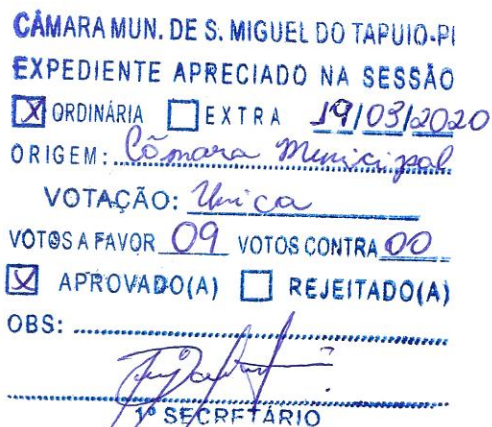 CÂMARA MUN. DE S. MIGUEL DO TAPUIO-PI
EXPEDIENTE APRECIADO NA SESSÃO
[X] ORDINÁRIA [ ] EXTRA 19/03/2020
ORIGEM: Câmara Municipal
VOTAÇÃO: Unica
VOTOS A FAVOR 09 VOTOS CONTRA 00
[X] APROVADO(A) [ ] REJEITADO(A)
OBS:
1º SECRETÁRIO